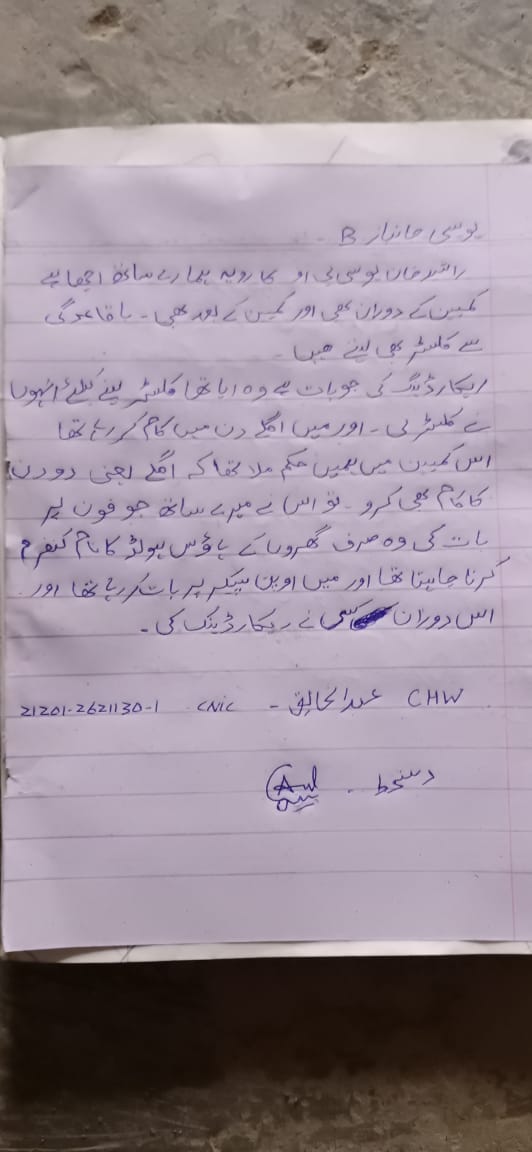 یوسی جانباز B -
راشد خان یوسی بی او کا رویہ ہمارے ساتھ اچھا ہے
کمپین کے دوران بھی اور کمپین کے بعد بھی - باقاعدگی
سے کلسٹر بھی لیتے ہیں -
ریکارڈینگ کی جو بات ہے وہ ایا تھا کلسٹر لینے کیلئے انہوں
نے کلسٹر لی - اور میں اگلے دن میں کام کر رہا تھا
اس کمپین میں ہمیں حکم ملا تھا کہ اگلے یعنی دو دن
کا کام بھی کرو - تو اس نے میرے ساتھ جو فون پر
بات کی وہ صرف گھروں کے ہاؤس ہولڈ کا نام کنفرم
کرنا چاہتا تھا اور میں اوپن سپیکر پر بات کر رہا تھا اور
اس دوران کسی نے ریکارڈینگ کی -
CHW عبدالخالق - CNIC 21201-2621130-1
دستخط -